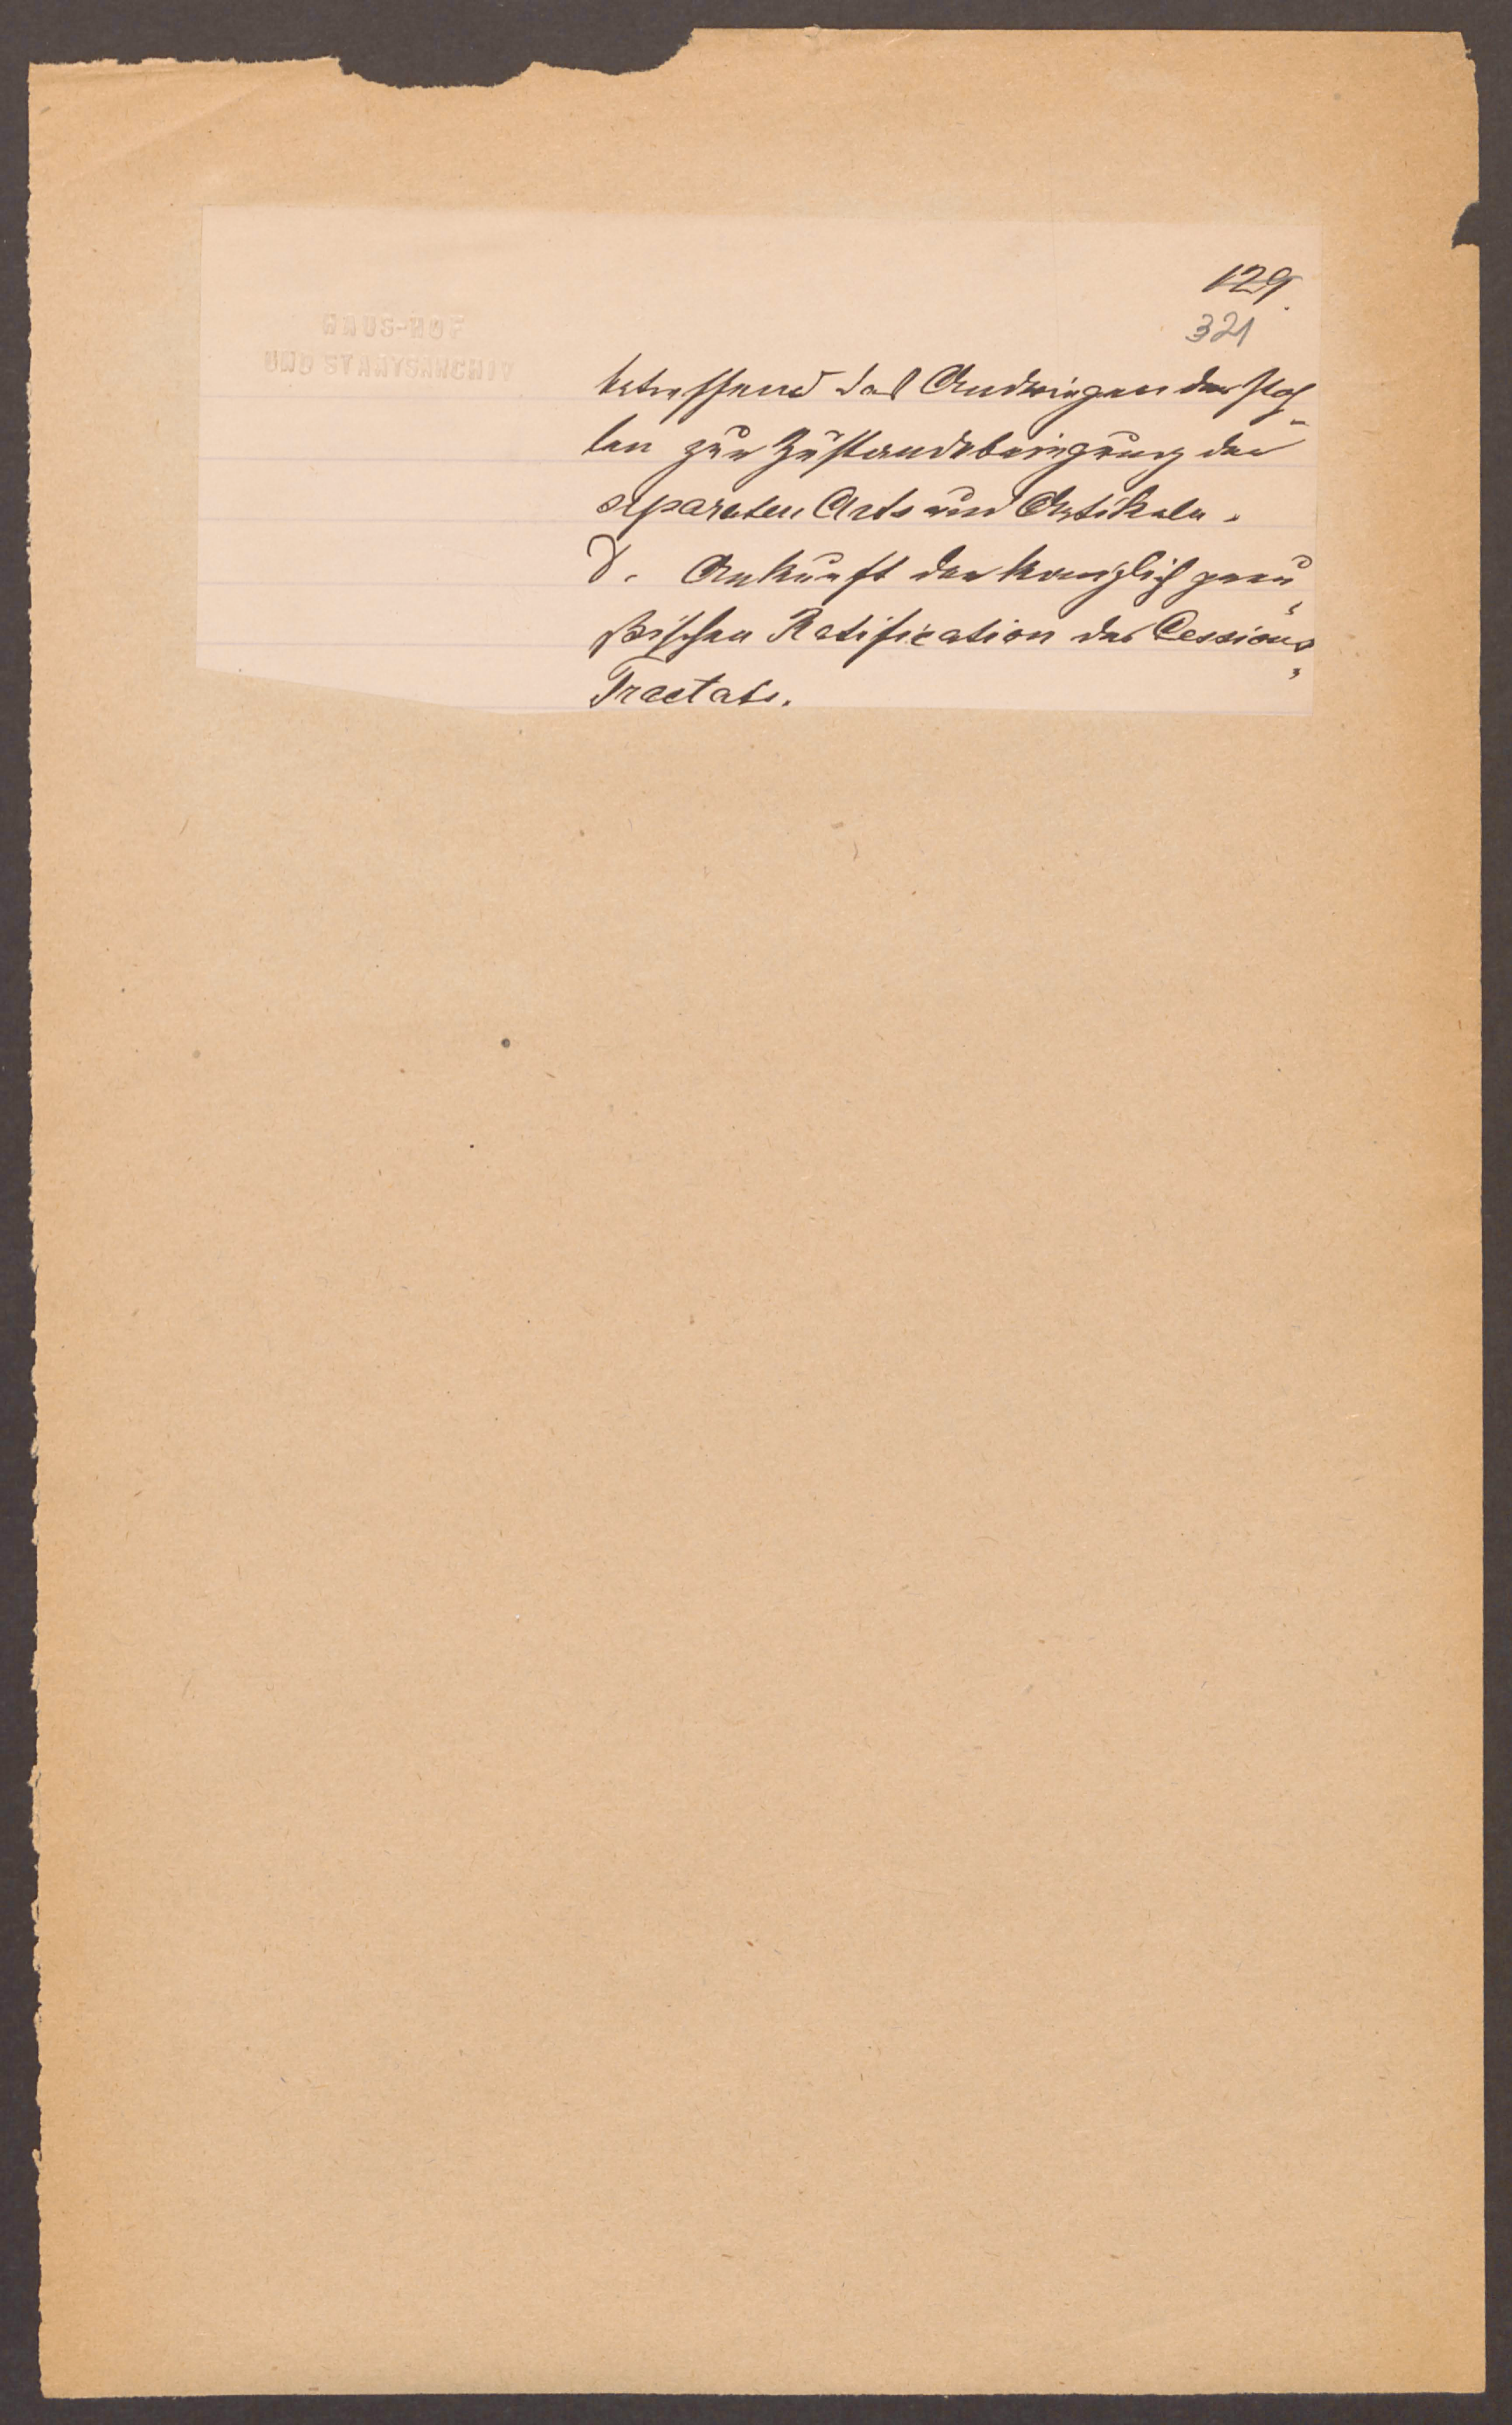 129.
321
HAUS-HOF
UND STAATSARCHIV
betreffend das Andringen der Pfor-
ten zur Zustandebringung der
separaten Acts und Artikeln.
d. Ankunft der königlich preu„
ßischen Ratification des Cessions„
Tractats.